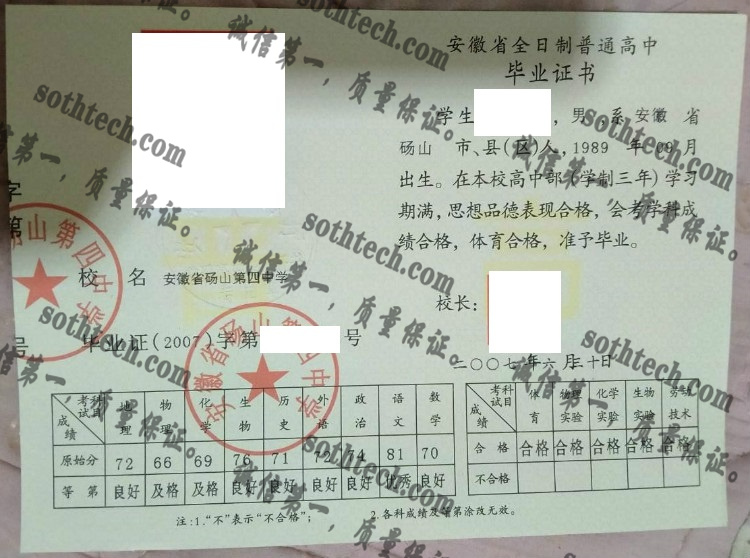 安徽省全日制普通高中
毕业证书
学生 ,男,系 安徽 省
砀山 市、县(区)人,1989 年 09 月
出生。在本校高中部(学制三年)学习
期满,思想品德表现合格,会考学科成
绩合格,体育合格,准予毕业。
校长:
二〇〇七年六月三十日
字
第
号
校 名 安徽省砀山第四中学
毕业证(2007)字第 号
安徽省砀山第四中学
砀山第四中学
考试科目 成绩 地理 物理 化学 生物 历史 外语 政治 语文 数学
原始分 72 66 69 76 71 72 74 81 70
等 第 良好 及格 及格 良好 良好 良好 良好 优秀 良好
考试科目 成绩 体育 物理实验 化学实验 生物实验 劳动技术
合 格 合格 合格 合格 合格 合格
不合格
注:1.“不”表示“不合格”; 2.各科成绩及等第涂改无效。
sothtech.com
诚信第一,质量保证。